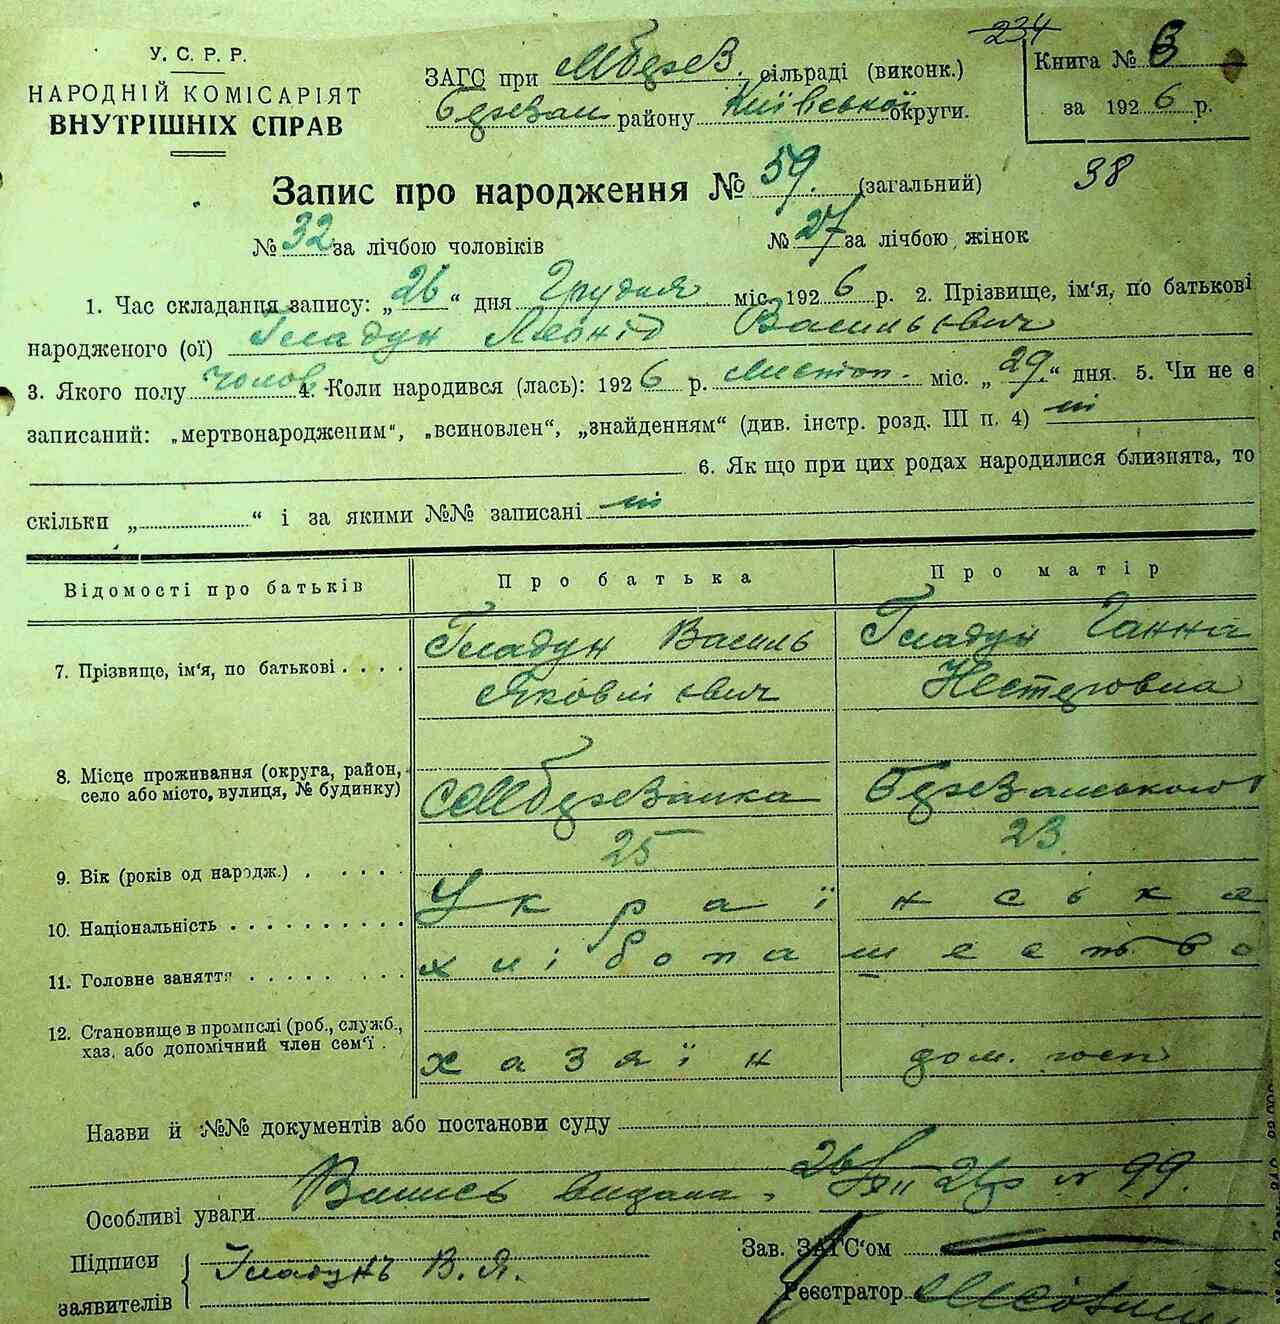 234
У. С. Р. Р.
НАРОДНІЙ КОМІСАРІЯТ
ВНУТРІШНІХ СПРАВ
ЗАГС при Мберез. сільраді (виконк.)
Березан району Київської округи.
Книга № 3
за 1926 р.
38
Запис про народження № 59. (загальний)
№ 32 за лічбою чоловіків № 27 за лічбою жінок
1. Час складання запису: „26“ дня Грудня міс. 1926 р. 2. Прізвище, ім'я, по батькові
народженого (ої) Гладун Леонід Васильович
3. Якого полу чолов 4. Коли народився (лась): 1926 р. Листоп. міс. „29“ дня. 5. Чи не є
записаний: „мертвонародженим“, „всиновлен“, „знайденням“ (див. інстр. розд. III п. 4) ні
6. Як що при цих родах народилися близнята, то
скільки „ “ і за якими №№ записані ні
Відомості про батьків Про батька Про матір
7. Прізвище, ім'я, по батькові . . . . Гладун Василь Гладун Ганна
Яковлівич Нестеровна
8. Місце проживання (округа, район,
село або місто, вулиця, № будинку) Березанка Березанського
9. Вік (років од народж.) . . . . . 25 23.
10. Національність . . . . . . . . . . Українська
11. Головне заняття . . . . . . хлібопашество
12. Становище в промислі (роб., служб.,
хаз. або допомічний член сем'ї . хазяїн дом. госп
Назви й №№ документів або постанови суду
Особливі уваги Випись видана 26/XII 26р № 99.
Підписи
заявителів Гладунъ В. Я.
Зав. ЗАГС'ом
Реєстратор